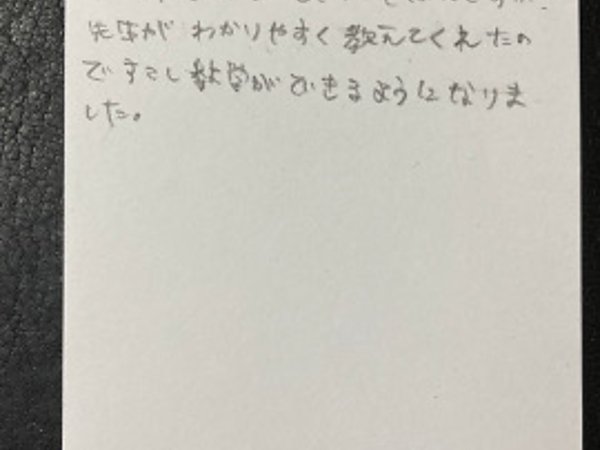 先生が わかりやすく 教えてくれたの
ですこし数学ができるようになりま
した。